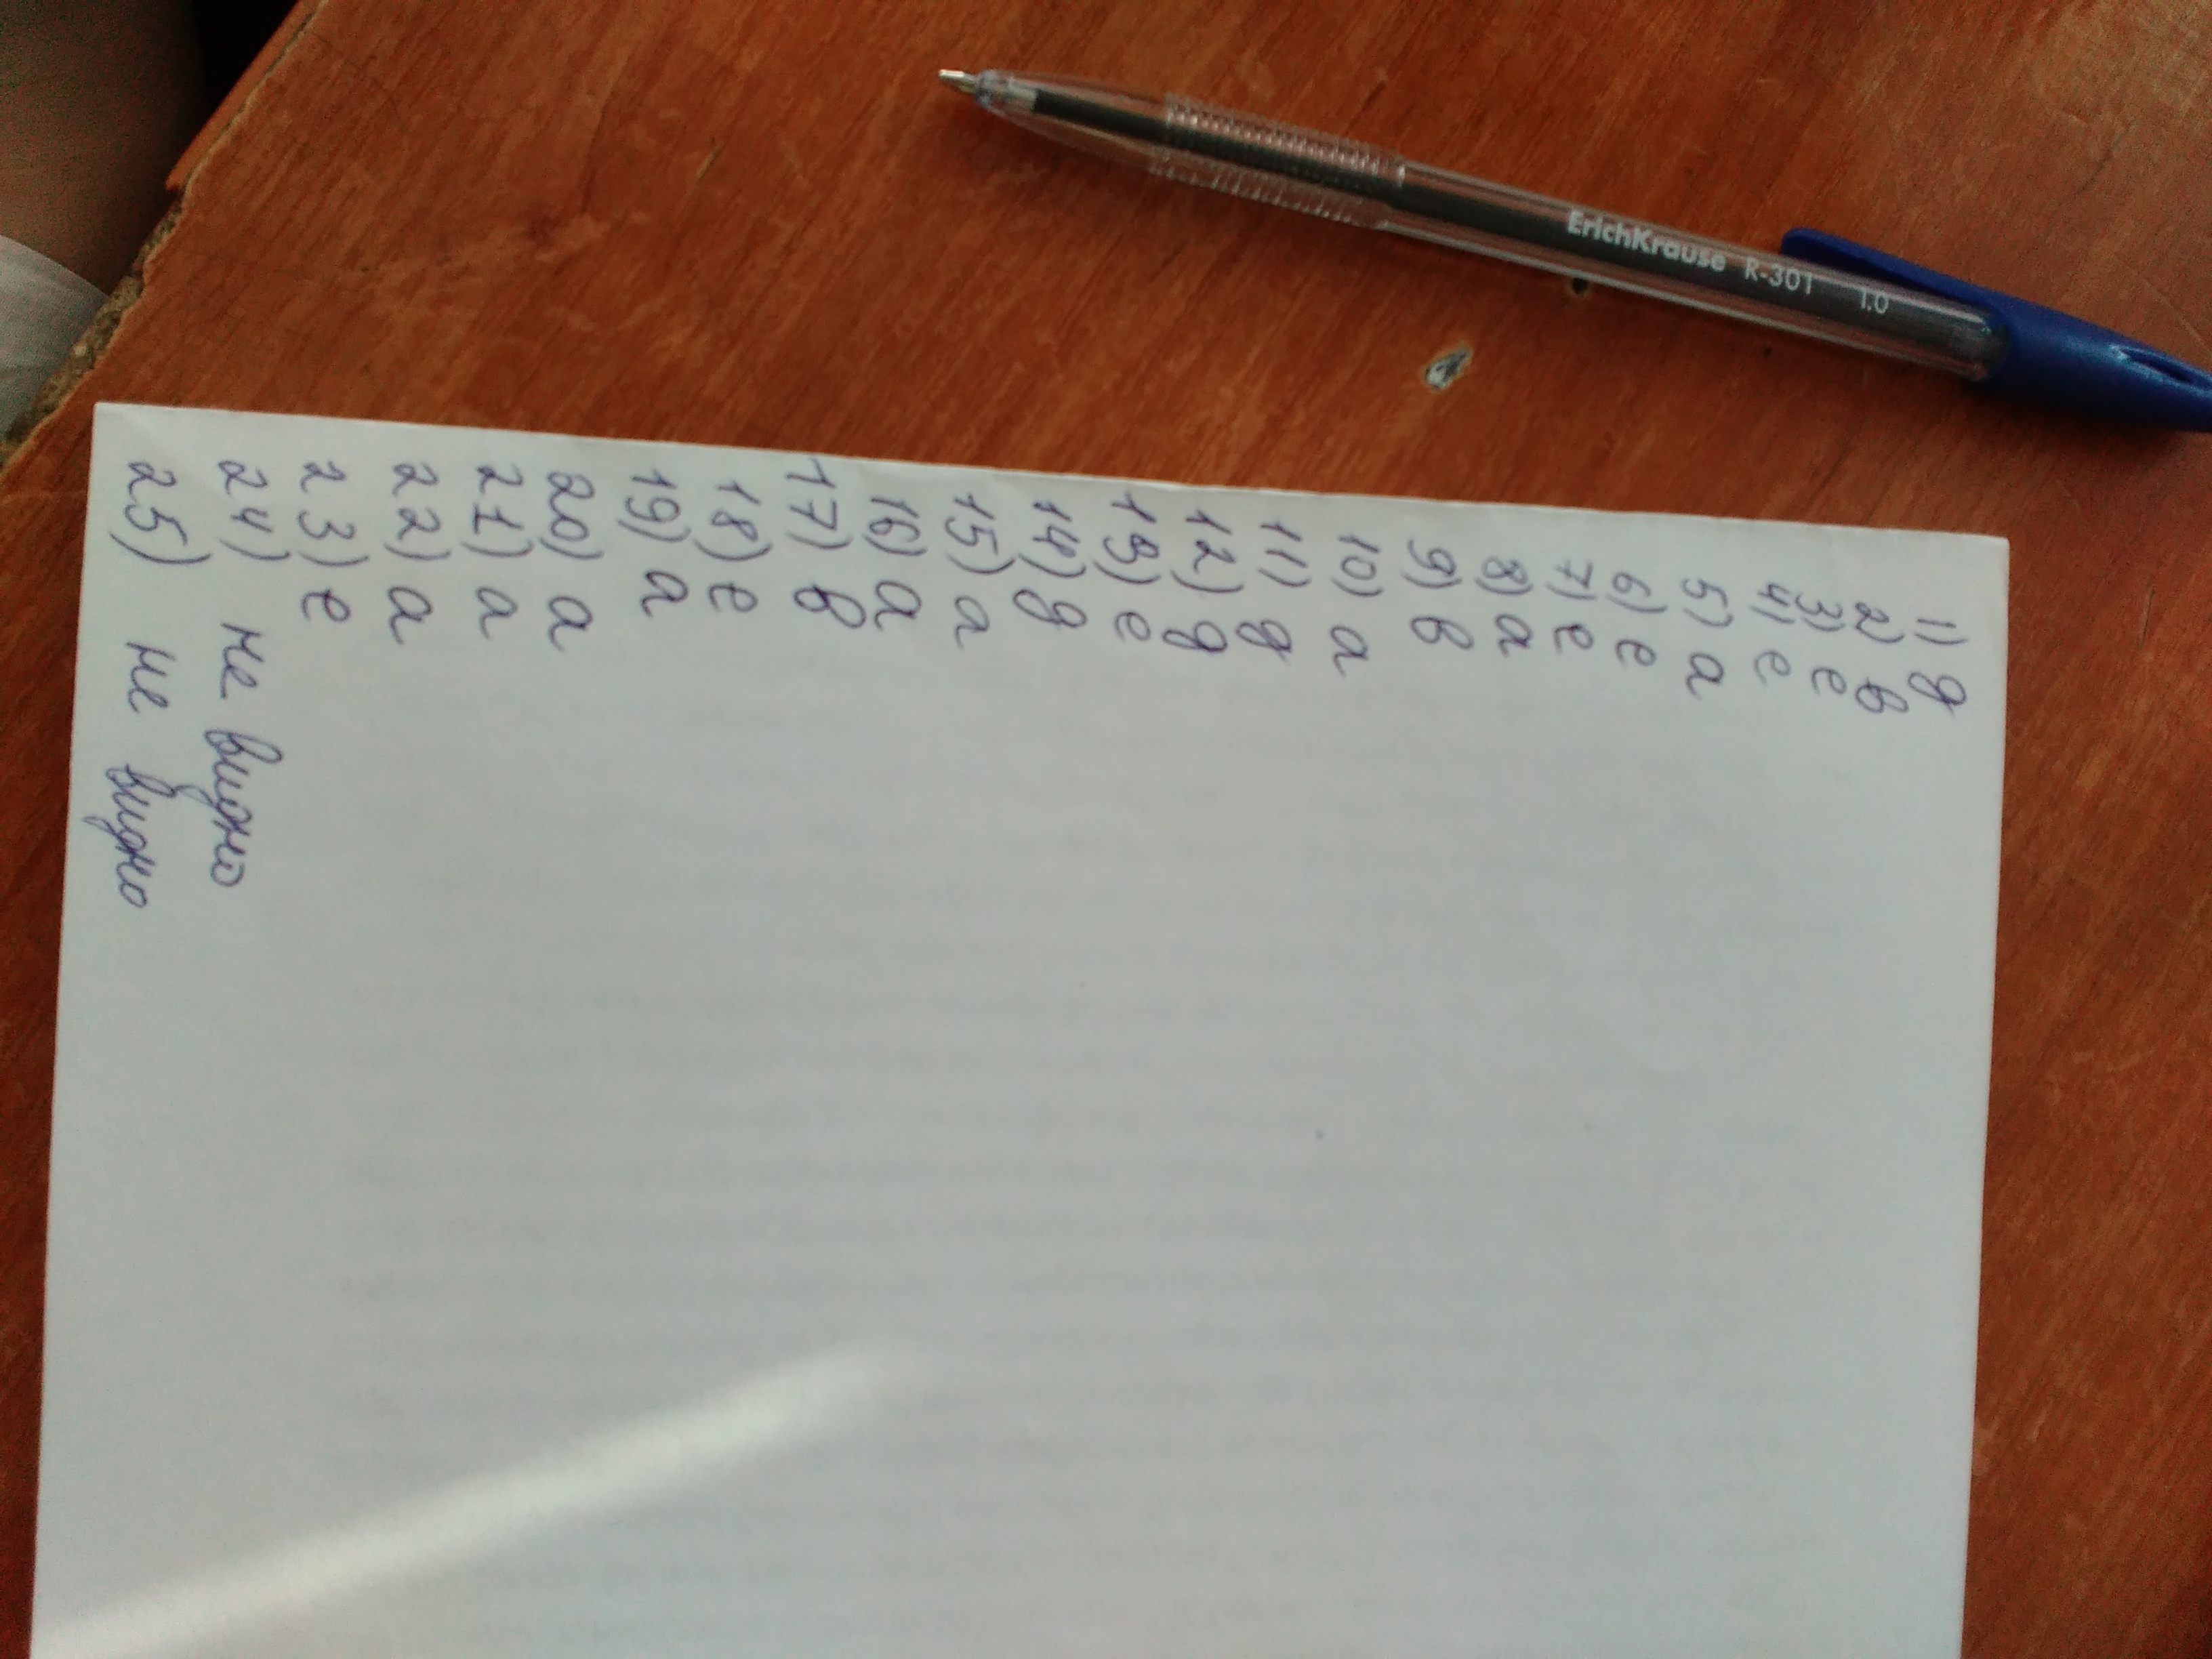 ErichKrause R-301 1.0
1) д
2) в
3) е
4) е
5) а
6) е
7) е
8) а
9) в
10) а
11) д
12) д
13) е
14) д
15) а
16) а
17) в
18) е
19) а
20) а
21) а
22) а
23) е
24) не видно
25) не видно